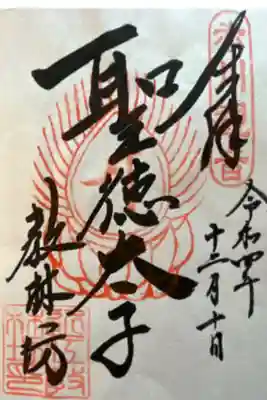 奉拝
令和四年
十二月十日
聖徳太子
教林坊